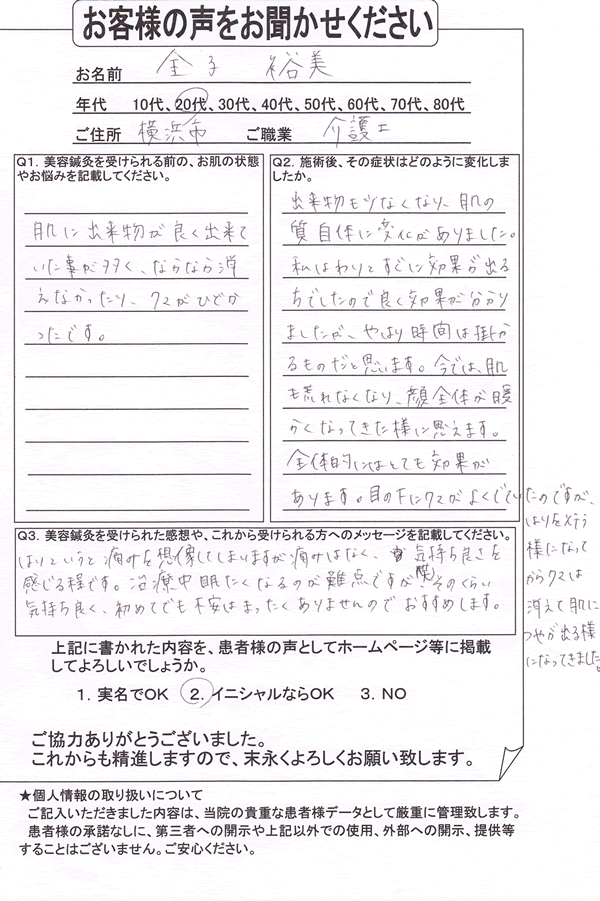 お客様の声をお聞かせください
お名前 金子 裕美
年代 10代、20代、30代、40代、50代、60代、70代、80代
ご住所 横浜市 ご職業 介護士
Q1. 美容鍼灸を受けられる前の、お肌の状態
やお悩みを記載してください。
肌に出来物が良く出来て
いた事が多く、なかなか消
えなかったり、クマがひどか
ったです。
Q2. 施術後、その症状はどのように変化しま
したか。
出来物も少なくなり、肌の
質自体に変化がありました。
私はわりとすぐに効果が出る
ちでしたので良く効果が分かり
ましたが、やはり時間は掛か
るものだと思います。今では、肌
も荒れなくなり、顔全体が暖
かくなってきた様に思えます。
全体的にはとても効果が
あります。目の下にクマがよくでていたのですが、
はりを行う
様になって
からクマは
消えて肌に
つやが出る様
になってきました。
Q3. 美容鍼灸を受けられた感想や、これから受けられる方へのメッセージを記載してください。
はりというと痛みを想像してしまいますが痛みはなく、気持ち良さを
感じる程です。治療中眠たくなるのが難点ですが(笑)そのくらい
気持ち良く、初めてでも不安はまったくありませんのでおすすめします。
上記に書かれた内容を、患者様の声としてホームページ等に掲載
してよろしいでしょうか。
1. 実名でOK 2. イニシャルならOK 3. NO
ご協力ありがとうございました。
これからも精進しますので、末永くよろしくお願い致します。
★個人情報の取り扱いについて
ご記入いただきました内容は、当院の貴重な患者様データとして厳重に管理致します。
患者様の承諾なしに、第三者への開示や上記以外での使用、外部への開示、提供等
することはございません。ご安心ください。